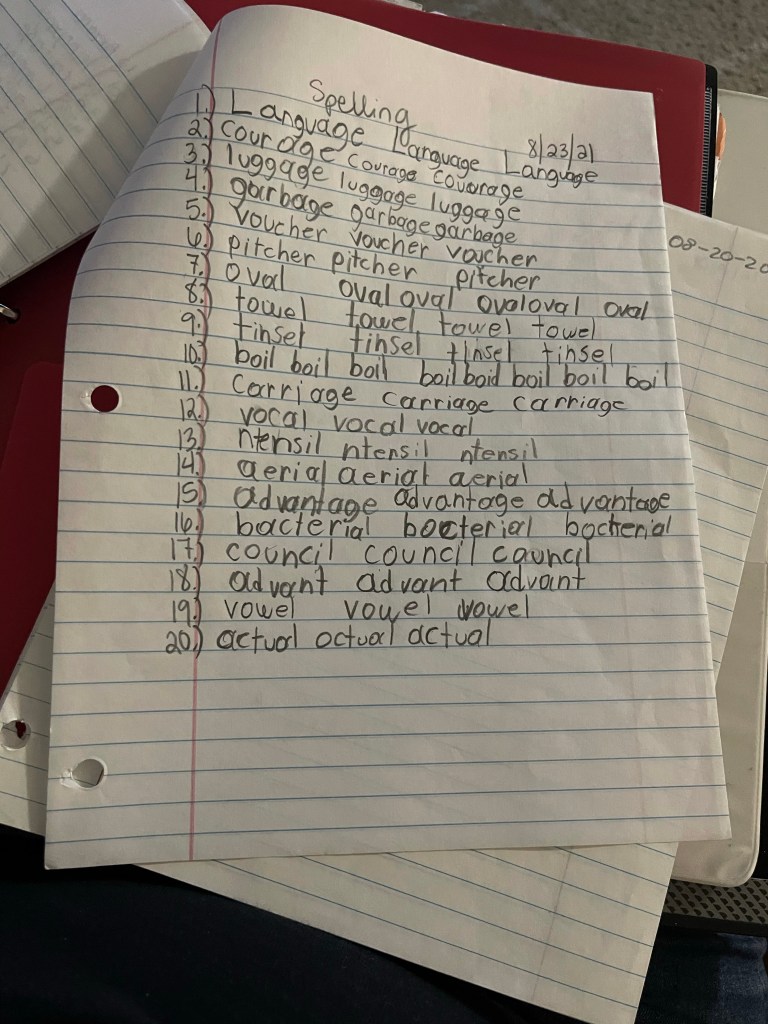 Spelling
8/23/21
1.) Language Language Language
2.) courage courage couorage
3.) luggage luggage luggage
4.) garbage garbage garbage
5.) voucher voucher voucher
6.) pitcher pitcher pitcher
7.) oval oval oval ovaloval oval
8.) towel towel towel towel
9.) tinsel tinsel tinsel tinsel
10.) boil boil boil boil boid boil boil boil
11.) carriage carriage carriage
12.) vocal vocal vocal
13.) ntensil ntensil ntensil
14.) aerial aerial aerial
15.) advantage advantage advantage
16.) bacterial bacterial bacterial
17.) council council council
18.) advant advant advant
19.) vowel vowel vowel
20.) actual actual actual
08-20-20